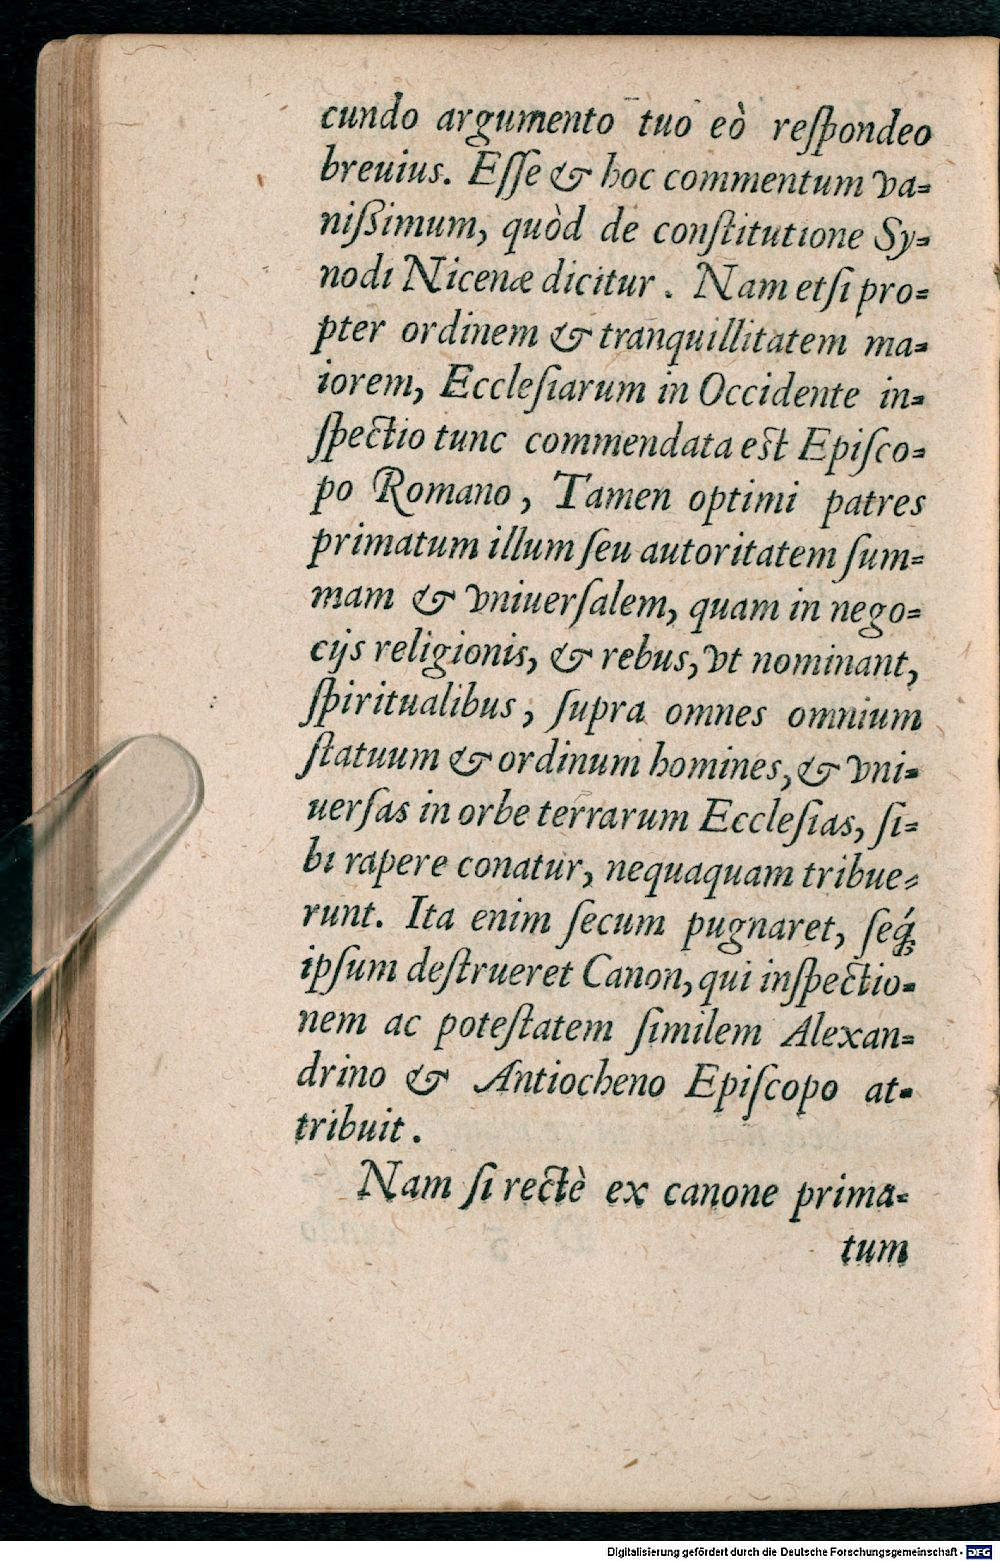 cundo argumento tuo eò reſpondeo
breuius. Eſſe & hoc commentum va=
nißimum, quòd de conſtitutione Sy=
nodi Nicenæ dicitur. Nam etſi pro=
pter ordinem & tranquillitatem ma=
iorem, Eccleſiarum in Occidente in=
ſpectio tunc commendata eſt Epiſco=
po Romano, Tamen optimi patres
primatum illum ſeu autoritatem ſum=
mam & vniuerſalem, quam in nego=
cijs religionis, & rebus, vt nominant,
ſpiritualibus, ſupra omnes omnium
ſtatuum & ordinum homines, & vni=
uerſas in orbe terrarum Eccleſias, ſi=
bi rapere conatur, nequaquam tribue=
runt. Ita enim ſecum pugnaret, ſeq́;
ipſum deſtrueret Canon, qui inſpectio=
nem ac poteſtatem ſimilem Alexan=
drino & Antiocheno Epiſcopo at=
tribuit.
Nam ſi rectè ex canone prima=
tum
Digitalisierung gefördert durch die Deutsche Forschungsgemeinschaft - DFG